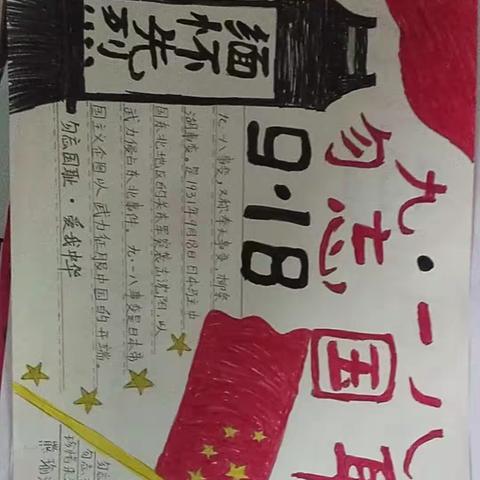 九·一八
勿忘国
9·18
缅怀先烈...
九·一八事变,又称奉天事变、柳条
湖事变。是1931年9月18日日本在中
国东北地区的关东军突袭沈阳,以
武力侵占东北事件。九·一八事变是日本帝
国主义企图以武力征服中国的开端。
勿忘国耻·爱我中华